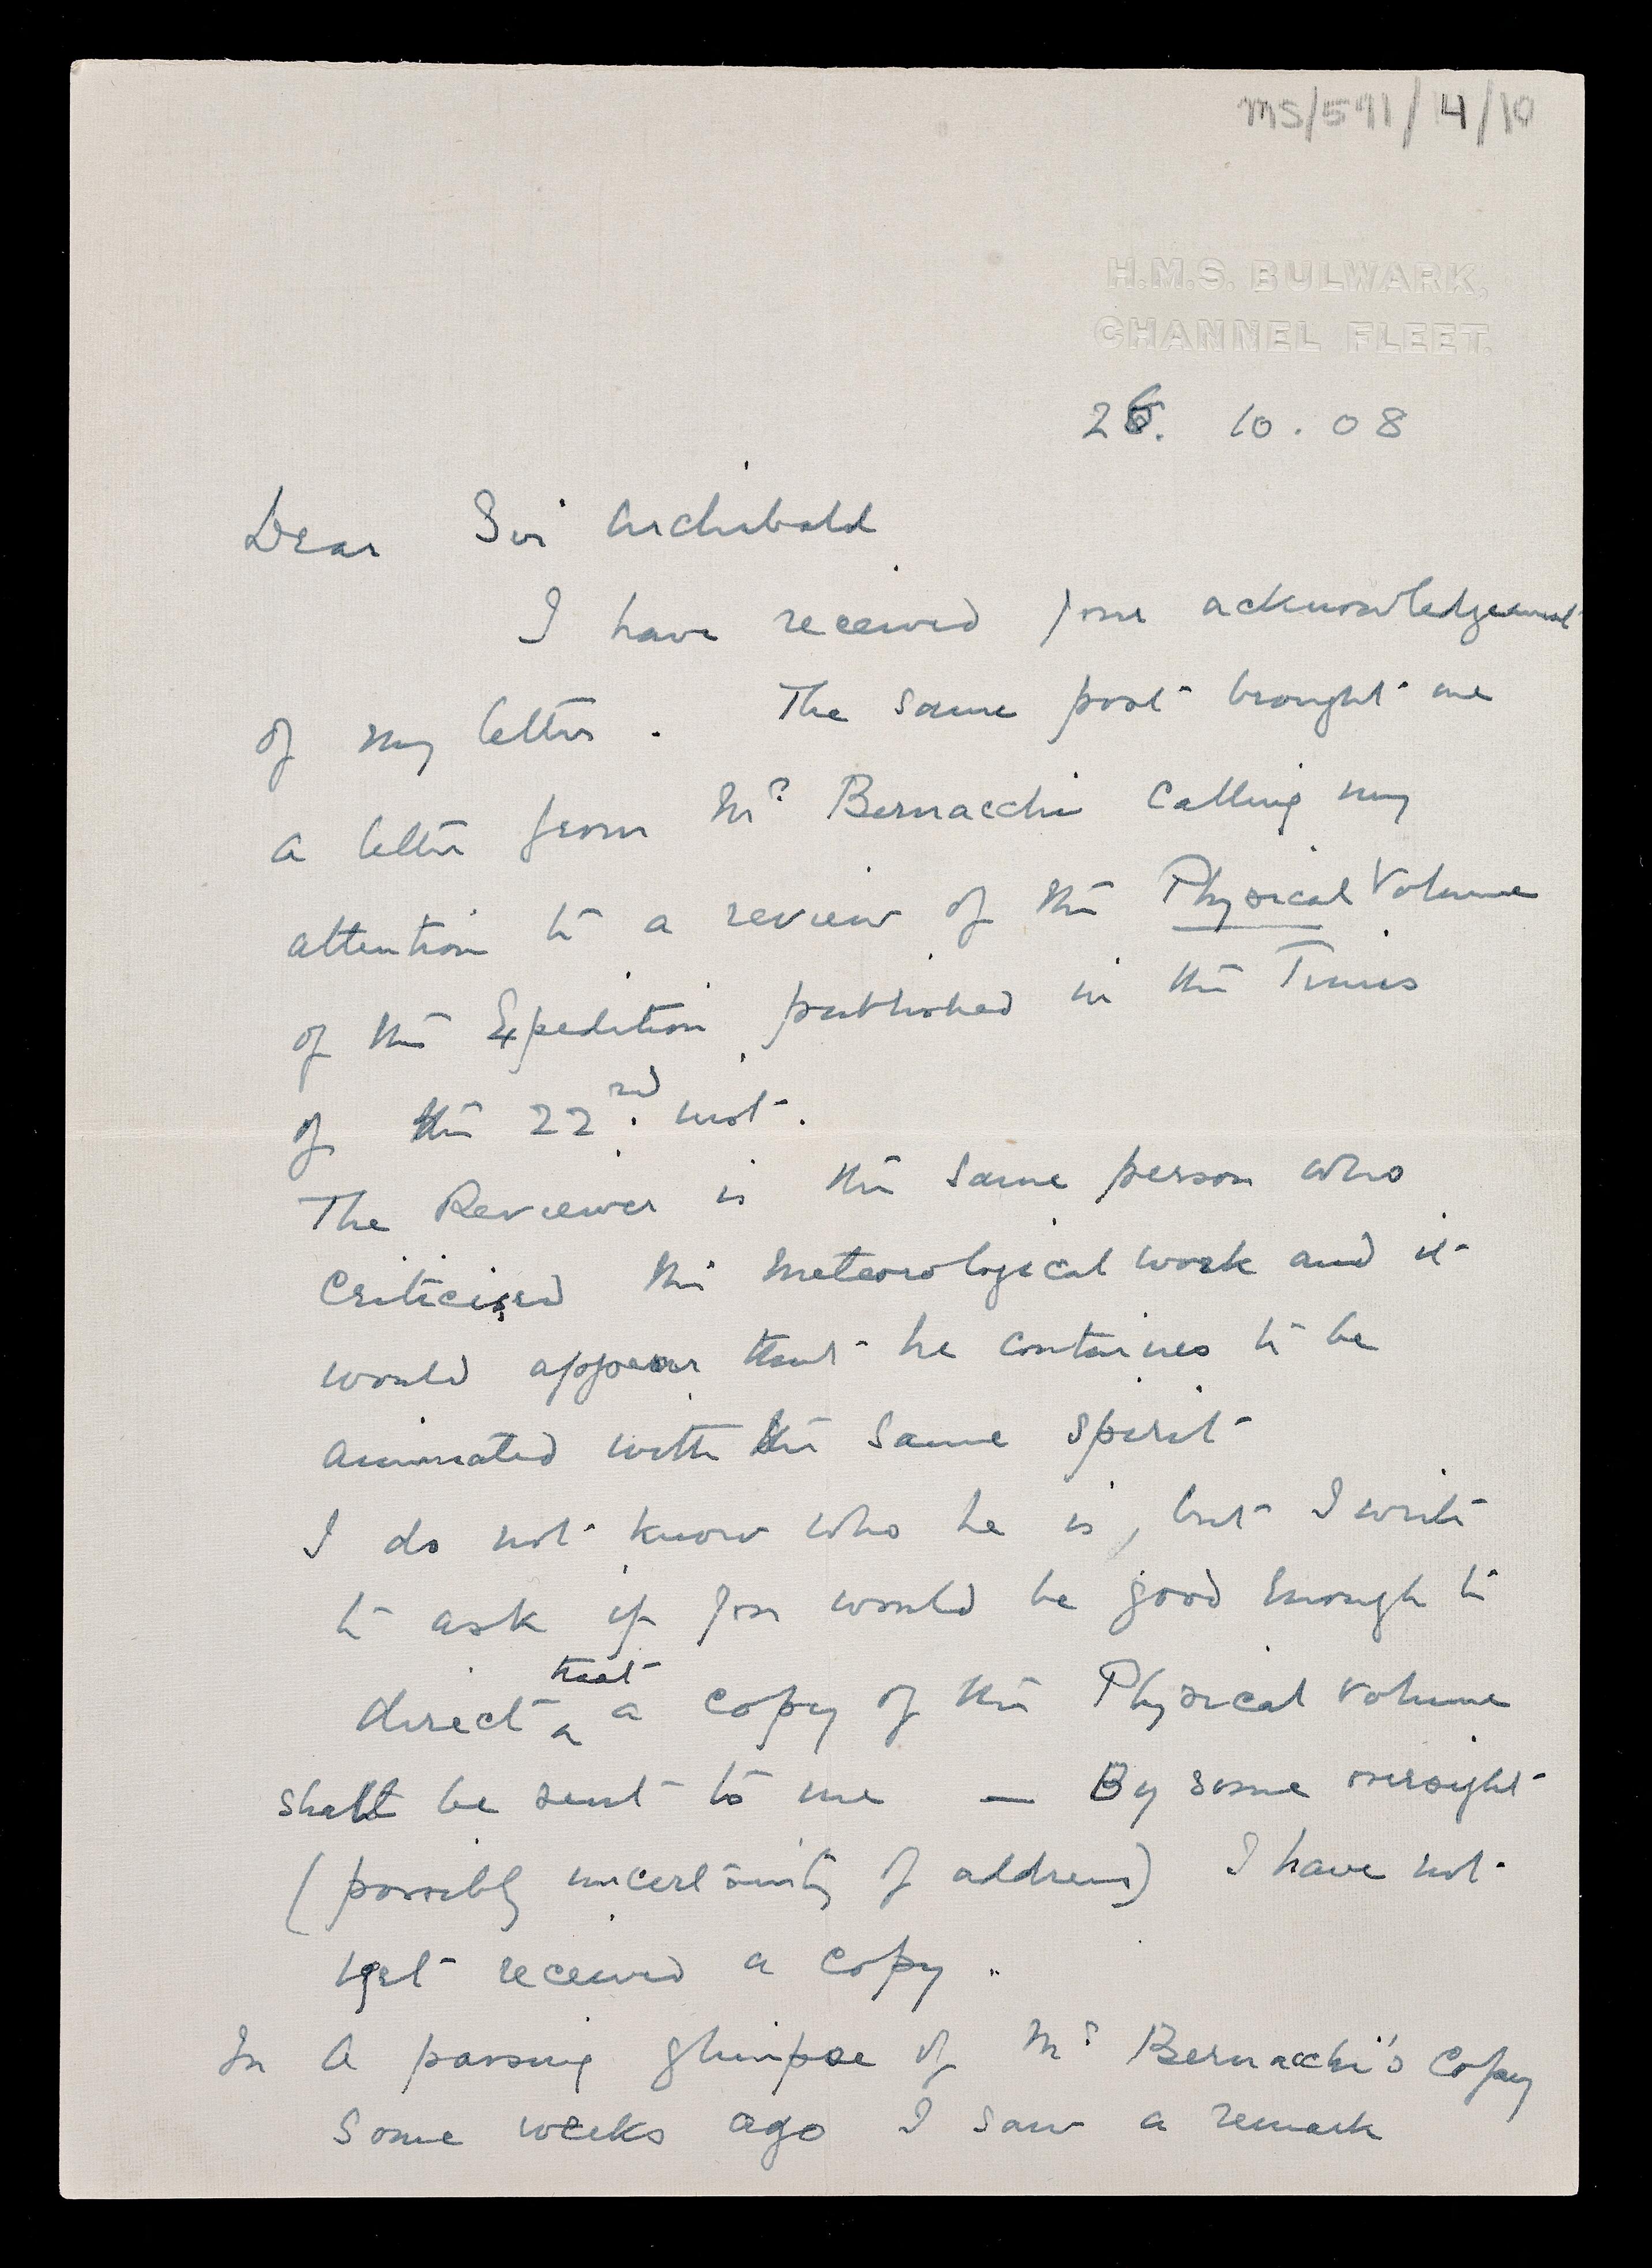 MS/591/14/10
H.M.S. BULWARK,
CHANNEL FLEET.
26. 10. 08
Dear Sir Archibald
I have received your acknowledgement
of my letter. The same post brought me
a letter from Mr Bernacchi calling my
attention to a review of the Physical Volume
of the Expedition published in the Times
of the 22nd inst.
The Reviewer is the same person who
criticised the meteorological work and it
would appear that he continues to be
animated with the same spirit
I do not know who he is, but I write
to ask if you would be good enough to
that
direct a copy of the Physical volume
shall be sent to me — By some oversight
(possibly uncertainty of address) I have not
yet received a copy.
In a passing glimpse of Mr Bernacchi's copy
some weeks ago I saw a remark